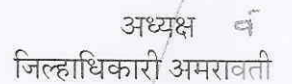 अध्यक्ष व
जिल्हाधिकारी अमरावती